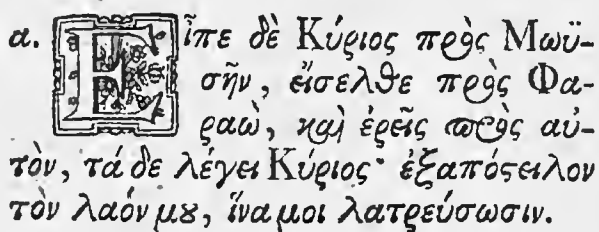 α. Εἶπε δὲ Κύριος πρὸς Μωϋ-
σῆν, εἴσελθε πρὸς Φα-
ραὼ, καὶ ἐρεῖς πρὸς αὐ-
τὸν, τά δε λέγει Κύριος· ἐξαπόστειλον
τὸν λαόν μου, ἵνα μοι λατρεύσωσιν.